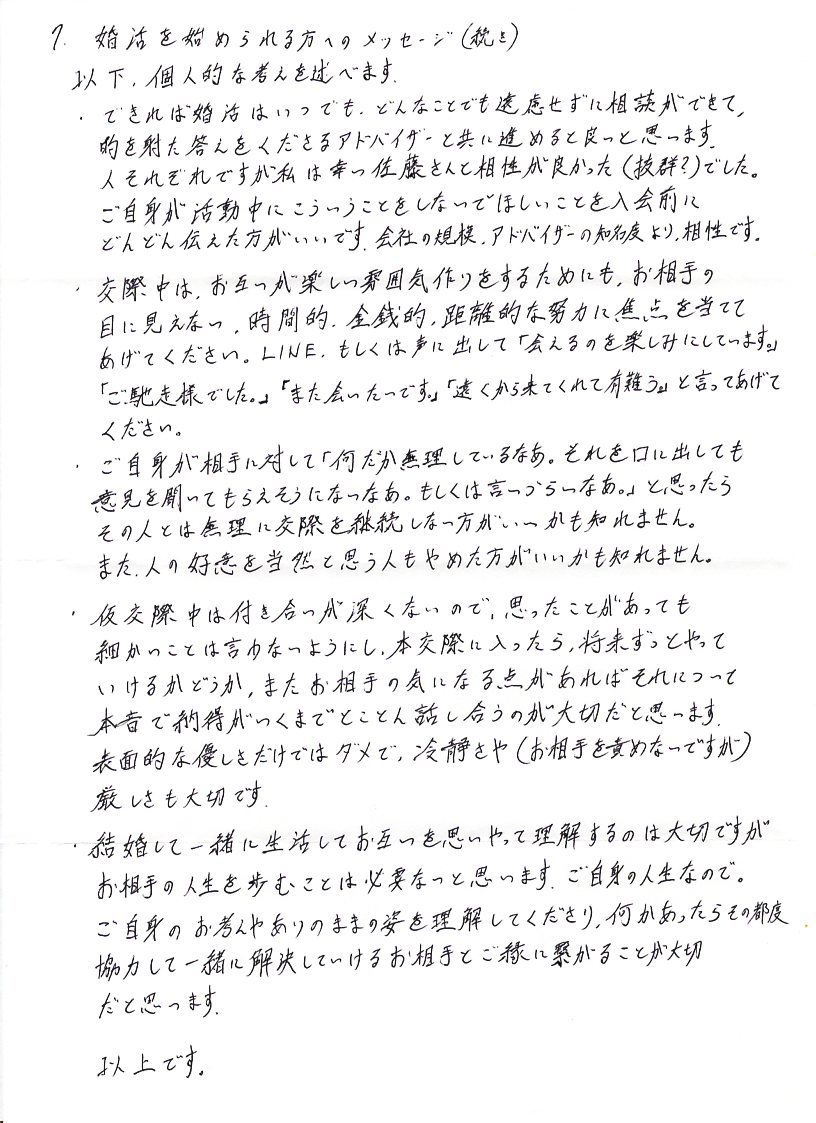 7. 婚活を始められる方へのメッセージ(続き)
以下、個人的な考えを述べます。
・できれば婚活はいつでも、どんなことでも遠慮せずに相談ができて、
的を射た答えをくださるアドバイザーと共に進めると良いと思います。
人それぞれですが私は幸い佐藤さんと相性が良かった(抜群?)でした。
ご自身が活動中にこういうことをしないでほしいことを入会前に
どんどん伝えた方がいいです。会社の規模、アドバイザーの知名度より、相性です。
・交際中は、お互いが楽しい雰囲気作りをするためにも、お相手の
目に見えない、時間的、金銭的、距離的な努力に焦点を当てて
あげてください。LINE、もしくは声に出して「会えるのを楽しみにしています。」
「ご馳走様でした。」「また会いたいです。」「遠くから来てくれて有難う。」と言ってあげて
ください。
・ご自身が相手に対して「何だか無理しているなあ。それを口に出しても
意見を聞いてもらえそうにないなあ。もしくは言いづらいなあ。」と思ったら
その人とは無理に交際を継続しない方がいいかも知れません。
また、人の好意を当然と思う人もやめた方がいいかも知れません。
・仮交際中は付き合いが深くないので、思ったことがあっても
細かいことは言わないようにし、本交際に入ったら、将来ずっとやって
いけるかどうか、またお相手の気になる点があればそれについて
本音で納得がいくまでとことん話し合うのが大切だと思います。
表面的な優しさだけではダメで、冷静さや(お相手を責めないですが)
厳しさも大切です。
・結婚して一緒に生活してお互いを思いやって理解するのは大切ですが
お相手の人生を歩むことは必要ないと思います。ご自身の人生なので。
ご自身のお考えやありのままの姿を理解してくださり、何かあったらその都度
協力して一緒に解決していけるお相手とご縁に繋がることが大切
だと思います。
以上です。